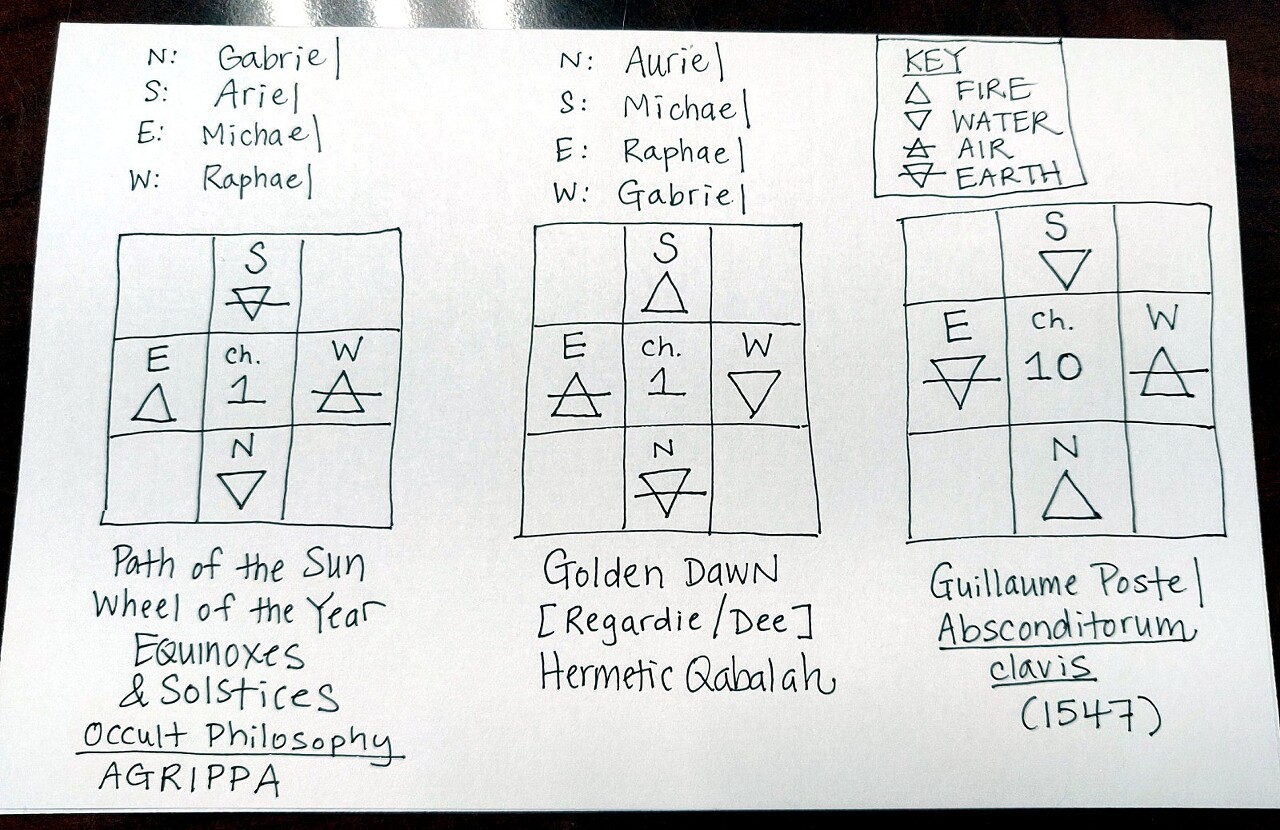 N: Gabriel
S: Ariel
E: Michael
W: Raphael
N: Auriel
S: Michael
E: Raphael
W: Gabriel
KEY
△ FIRE
▽ WATER
🜁 AIR
🜃 EARTH
S
🜃
E
△
ch.
1
W
🜁
N
▽
Path of the Sun
Wheel of the Year
Equinoxes
& Solstices
Occult Philosophy
AGRIPPA
S
△
E
🜁
ch.
1
W
▽
N
🜃
Golden Dawn
[Regardie/Dee]
Hermetic Qabalah
S
▽
E
🜃
ch.
10
W
🜁
N
△
Guillaume Postel
Absconditorum
clavis
(1547)